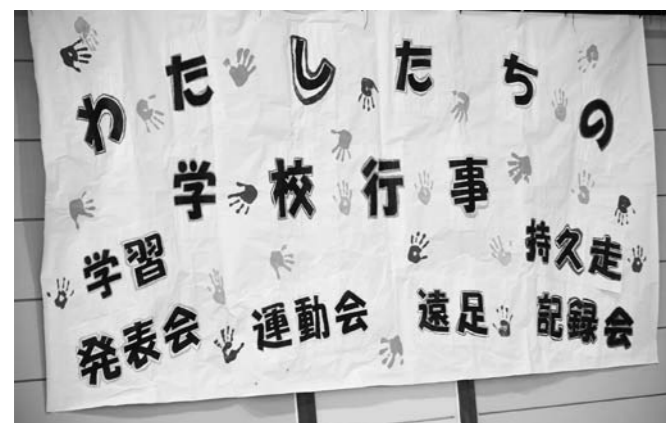 わたしたちの
学校行事
学習発表会
運動会
遠足
持久走記録会